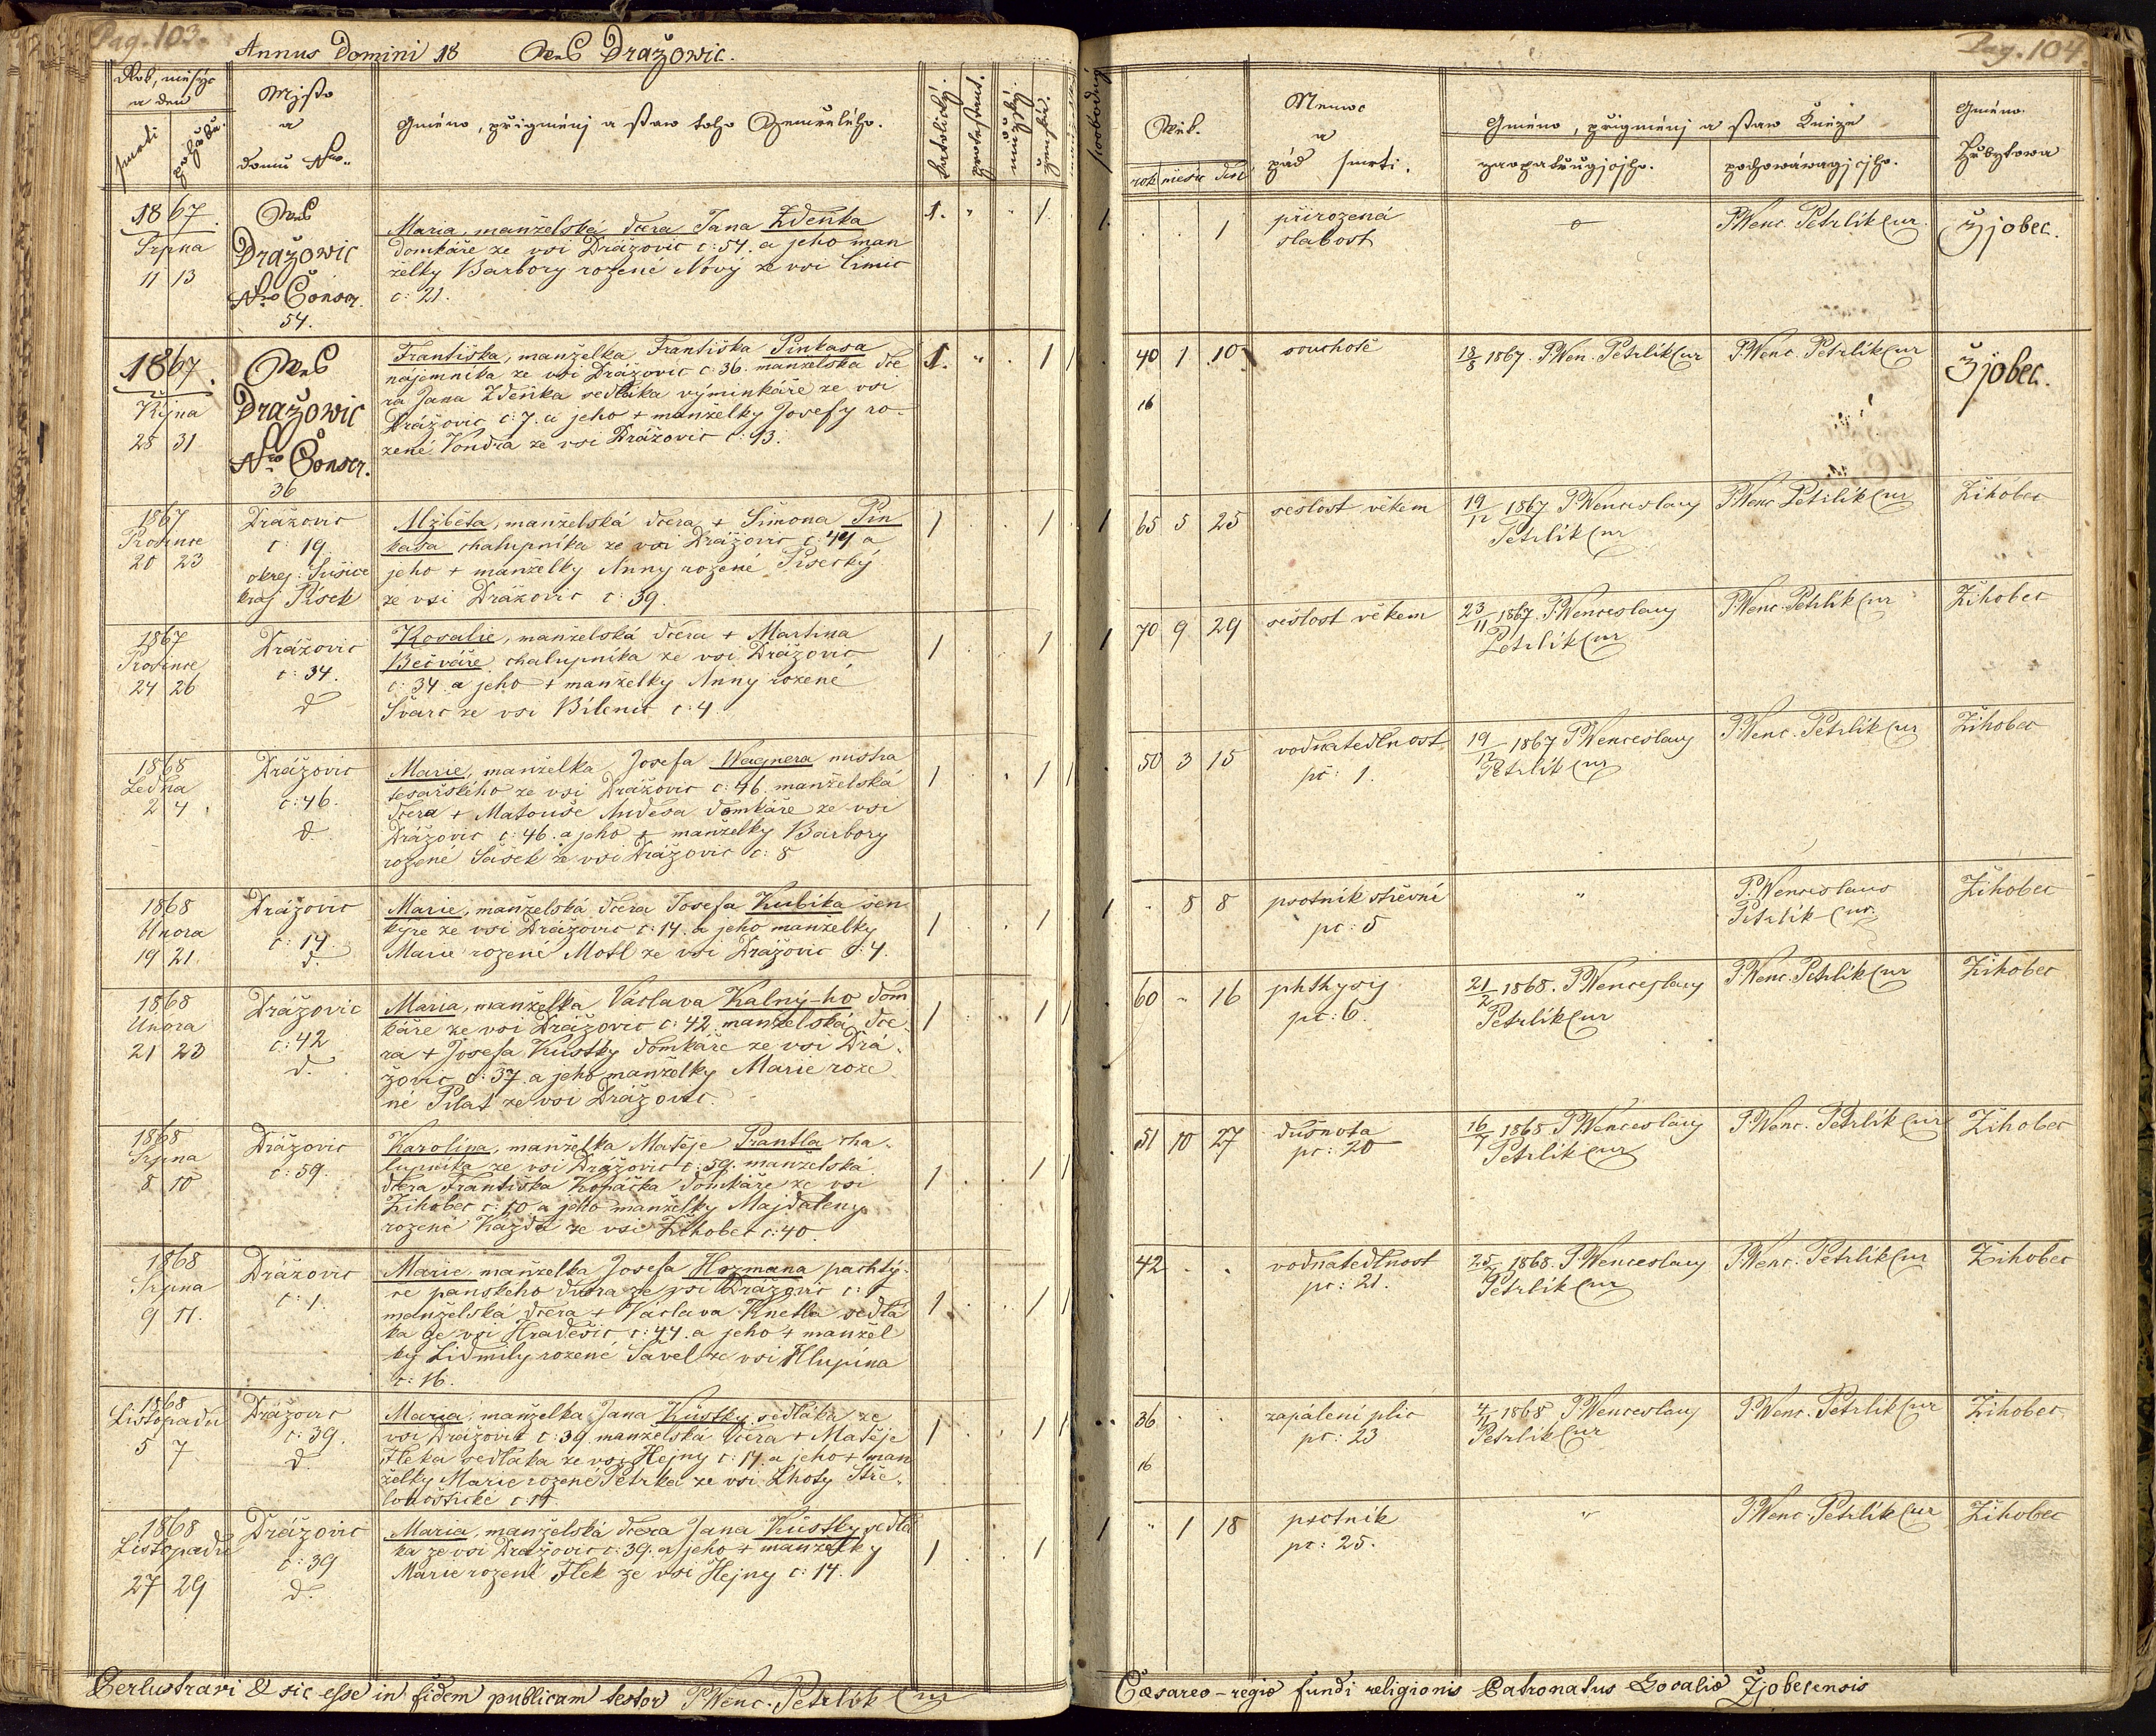 Pag. 103.
Annus Domini 18 Wes Dražowic.
Rok, měsýc
a den
smrti
pohřbu.
Mjsto
a
domu Nro.
Gméno, přigmenj a staw toho Zemřelého.
katolický.
protestant.
mužský.
ženský.
1867.
Srpna
11 13
Wes
Dražowic
Nro Conscr.
54.
Maria, manželská dcera Jana Zdeňka
domkáře ze vsi Drážovic č: 54. a jeho man
želky Barbory rozené Nový ze vsi Čimic
č: 21.
1. " . 1.
1867.
Října
28 31
Wes
Dražowic
Nro Conscr.
36
Františka, manželka Františka Pinkasa
nájemníka ze vsi Drážovic č. 36. manželská dce
ra Jana Zdeňka sedláka výminkáře ze vsi
Drážovic č: 7. a jeho + manželky Josefy ro-
zené Vondra ze vsi Drážovic č: 13.
1. " . 1 1
1867
Prosince
20 23
Drážovic
č: 19
okrej: Sušice
kraj Písek
Alžběta, manželská dcera + Šimona Pin
kasa chalupníka ze vsi Drážovic č: 44 a
jeho + manželky Anny rozené Písecký
ze vsi Drážovic č: 39.
1 1
1867
Prosince
24 26
Drážovic
č: 34.
d
Rosalie, manželská dcera + Martina
Bečváře chalupníka ze vsi Drážovic
č: 34 a jeho + manželky Anny rozené
Švarc ze vsi Bílenic č: 4
1 1
1868
Ledna
2 4
Drážovic
č: 46.
d
Marie, manželka Josefa Wagnera mistra
tesařského ze vsi Drážovic č: 46. manželská
dcera + Matouše Andesa domkáře ze vsi
Drážovic č: 46. a jeho + manželky Barbory
rozené Šašek ze vsi Drážovic č: 8
1 1 1
1868
Února
19 21.
Drážovic
č: 14.
d.
Marie, manželská dcera Josefa Kubíka šen
kýře ze vsi Drážovic č: 14. a jeho manželky
Marie rozené Motl ze vsi Drážovic č: 4.
1 1
1868
Února
21 23
Drážovic
č: 42
d.
Maria, manželka Václava Kalný-ho dom
káře ze vsi Drážovic č: 42 manželská dce-
ra + Josefa Kůstky domkáře ze vsi Drá-
žovic č: 37. a jeho manželky Marie roze
né Pilat ze vsi Drážovic.
1 1 1
1868
Srpna
8 10
Drážovic
č: 59.
Karolina, manželka Matěje Prantla cha-
lupníka ze vsi Drážovic č: 59. manželská
dcera Františka Kopáčka domkáře ze vsi
Žihobec č: 10 a jeho manželky Majdaleny
rozené Kazda ze vsi Žihobec č: 40.
1 1 1
1868
Srpna
9 11.
Drážovic
č: 1.
Marie, manželka Josefa Hozmana pachtý-
ře panského dvora ze vsi Drážovic č: 1
manželská dcera + Václava Knetla sedlá
ka ze vsi Hradešic č: 44. a jeho + manžel
ky Lidmily rozené Savel ze vsi Hlupína
č: 16.
1 1 1
1868
Listopadu
5 7
Drážovic
č: 39.
d
Maria, manželka Jana Kůstky sedláka ze
vsi Drážovic č: 39 manželská dcera + Matěje
Fleka sedláka ze vsi Hejny č: 14. a jeho + man
želky Marie rozené Petrka ze vsi Lhoty Stře-
lohoštické č: 14.
1 1 1
1868
Listopadu
27 29
Drážovic
č: 39
d.
Maria, manželská dcera Jana Kůstky sedlá
ka ze vsi Drážovic č: 39. a jeho + manželky
Marie rozené Flek ze vsi Hejny č: 14.
1 1
Perlustravi & sic esse in fidem publicam testor P. Wenc. Petrlík Cur
Pag. 104.
swobodný
Wěk.
rok měsíc dni
Nemoc
a
pád smrti.
Gméno, přigmenj a staw Kněze
zaopatřugjcýho.
pochowáwagjcýho.
Gméno
Hřbytowa
1. . . 1
přirozená
slabost
o
P. Wenc. Petrlík Cur.
Žjobec.
40 1. 10
16
souchotě
18/8 1867. P. Wen. Petrlík Cur
P. Wenc. Petrlík Cur
Žjobec.
1 65 5 25
sešlost věkem
19/12 1867 P. Wenceslaus
Petrlík Cur
P. Wenc Petrlík Cur
Žihobec
1 70 9 29
sešlost věkem
23/11 1867. P. Wenceslaus
Petrlík Cur
P. Wenc. Petrlík Cur
Žihobec
50 3 15
vodnatedlnost
pč: 1.
19/12 1867 P. Wenceslaus
Petrlík Cur
P. Wenc. Petrlík Cur
Žihobec
1 . 8 8
psotník střevní
pč: 5
"
P. Wenceslaus
Petrlík Cur.
Žihobec
60 " 16
phthysis
pč: 6.
21/2 1868. P. Wenceslaus
Petrlík Cur
P. Wenc. Petrlík Cur
Žihobec
51 10 27
dušnota
pč: 20
16/7 1868 P. Wenceslaus
Petrlík Cur
P. Wenc. Petrlík Cur
Žihobec
42 . .
vodnatedlnost
pč: 21.
25/7 1868. P. Wenceslaus
Petrlík Cur
P. Wenc. Petrlík Cur
Žihobec
36 . .
16
zapálení plic
pč: 23
4/11 1868 P. Wenceslaus
Petrlík Cur
P. Wenc. Petrlík Cur
Žihobec
1 " 1 18
psotník
pč: 25.
"
P. Wenc. Petrlík Cur
Žihobec
Cæsareo-regio fundi religionis Patronatus Localis Žjobecensis